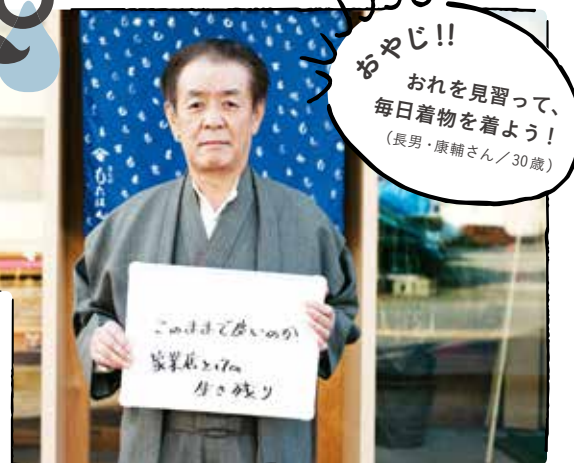 おやじ!!
おれを見習って、
毎日着物を着よう!
(長男・康輔さん/30歳)
このままで良いのか
家業店としての
生き残り